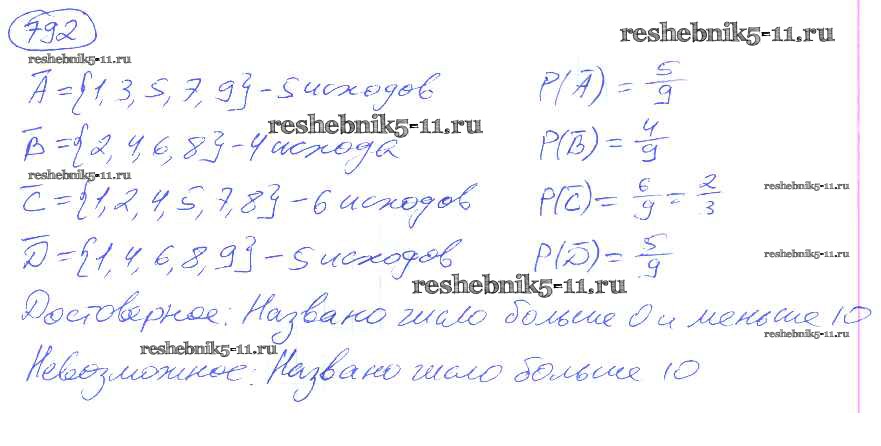 792
reshebnik5-11.ru
reshebnik5-11.ru
A̅ = {1, 3, 5, 7, 9} - 5 исходов P(A̅) = 5/9
reshebnik5-11.ru
B̅ = {2, 4, 6, 8} - 4 исхода P(B̅) = 4/9
reshebnik5-11.ru
reshebnik5-11.ru
C̅ = {1, 2, 4, 5, 7, 8} - 6 исходов P(C̅) = 6/9 = 2/3
D̅ = {1, 4, 6, 8, 9} - 5 исходов P(D̅) = 5/9
reshebnik5-11.ru
reshebnik5-11.ru
Достоверное: Названо число больше 0 и меньше 10
reshebnik5-11.ru
reshebnik5-11.ru
Невозможное: Названо число больше 10